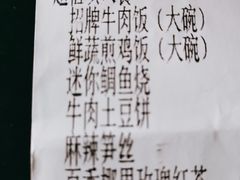 招牌牛肉饭（大碗）
鲜蔬煎鸡饭（大碗）
迷你鲷鱼烧
牛肉土豆饼
麻辣笋丝
玫瑰红茶